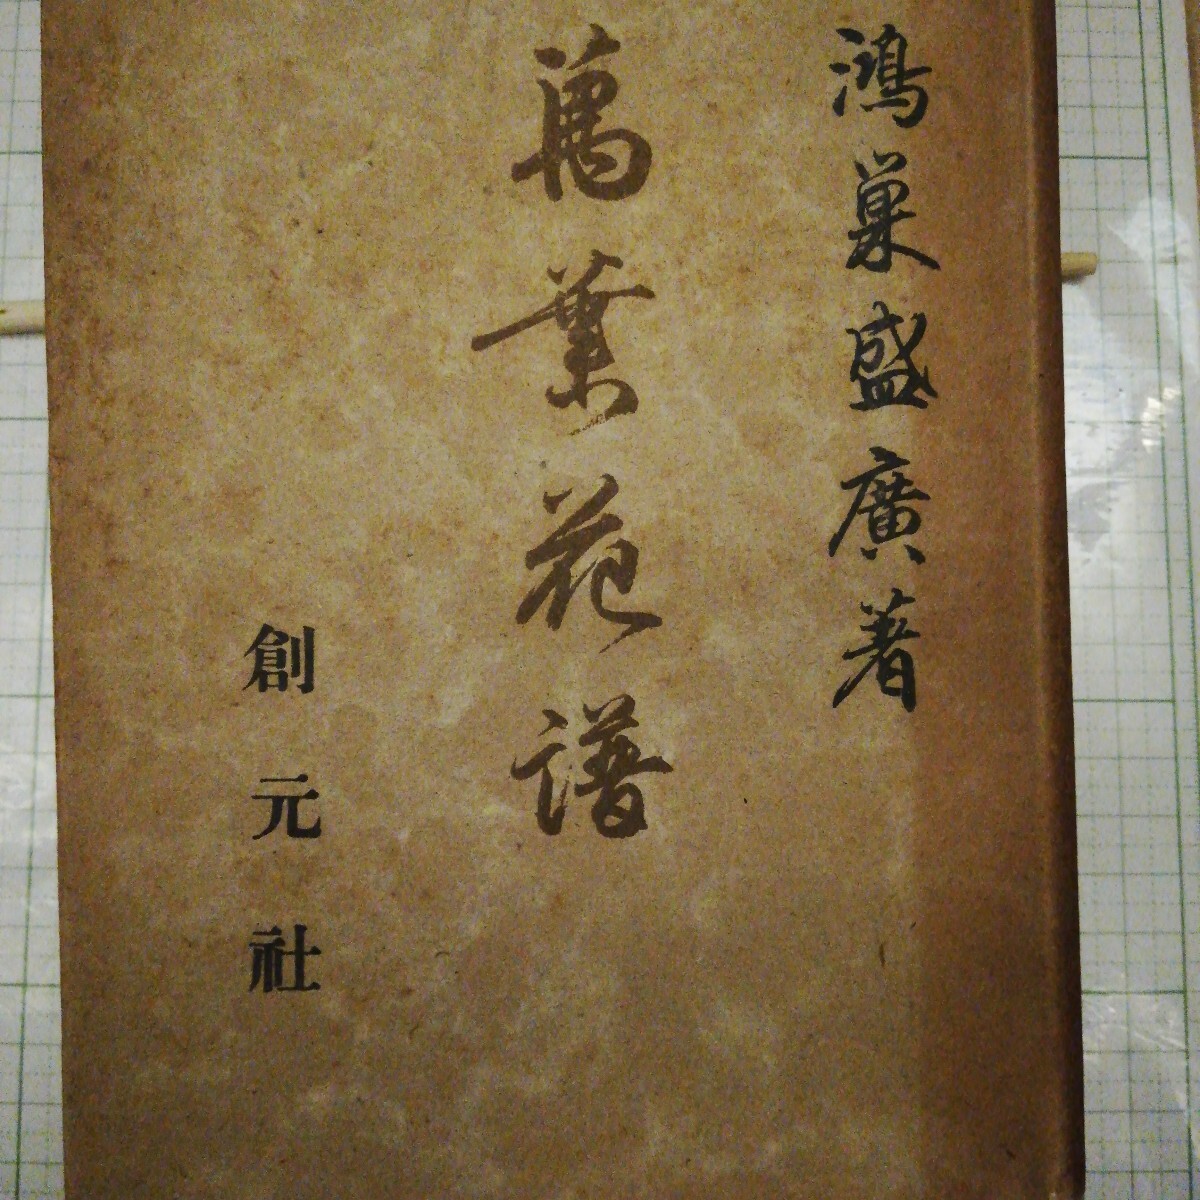 鴻巣盛廣著
萬葉花譜
創元社